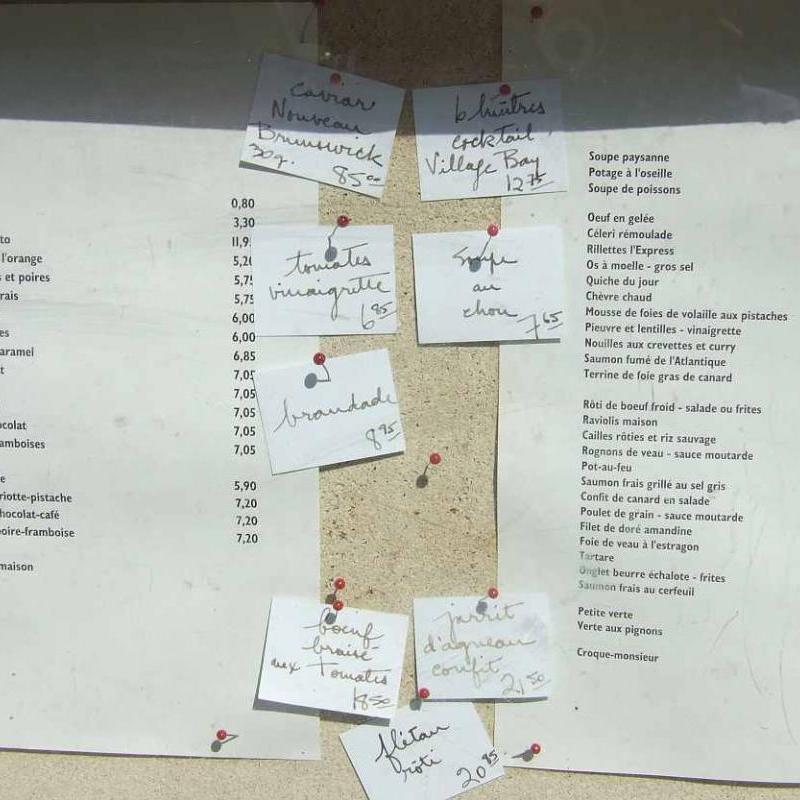 0,80
3,30
to 11,9
l'orange 5,2
s et poires 5,75
rais 5,75
6,00
es 6,00
aramel 6,85
t 7,05
7,05
7,05
ocolat 7,05
amboises 7,05
e 5,90
riotte-pistache 7,20
hocolat-café 7,20
oire-framboise 7,20
maison
caviar
Nouveau
Brunswick
30g. 85⁰⁰
6 huîtres
cocktail
Village Bay
12⁷⁵
tomates
vinaigrette
6⁸⁵
Soupe
au
chou
7⁶⁵
brandade
8⁹⁵
boeuf
braisé
aux Tomates
18⁵⁰
jarrit
d'agneau
confit
21⁵⁰
flétan
rôti
20⁹⁵
Soupe paysanne
Potage à l'oseille
Soupe de poissons
Oeuf en gelée
Céleri rémoulade
Rillettes l'Express
Os à moelle - gros sel
Quiche du jour
Chèvre chaud
Mousse de foies de volaille aux pistaches
Pieuvre et lentilles - vinaigrette
Nouilles aux crevettes et curry
Saumon fumé de l'Atlantique
Terrine de foie gras de canard
Rôti de boeuf froid - salade ou frites
Raviolis maison
Cailles rôties et riz sauvage
Rognons de veau - sauce moutarde
Pot-au-feu
Saumon frais grillé au sel gris
Confit de canard en salade
Poulet de grain - sauce moutarde
Filet de doré amandine
Foie de veau à l'estragon
Tartare
Onglet beurre échalote - frites
Saumon frais au cerfeuil
Petite verte
Verte aux pignons
Croque-monsieur